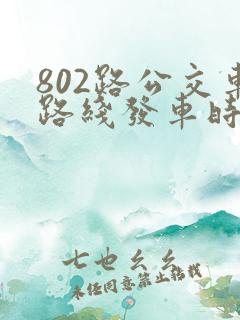 802路公交車
路綫發車時
七也幺幺
未经同意禁止转载